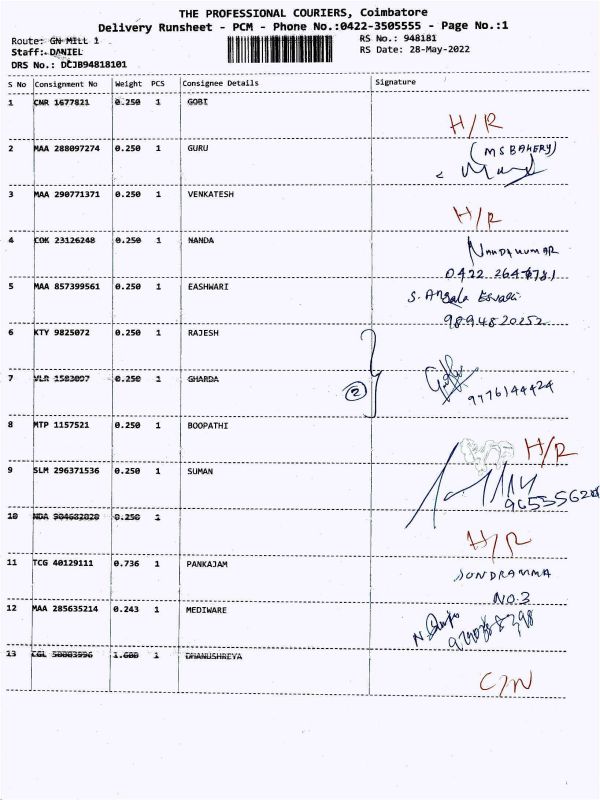 THE PROFESSIONAL COURIERS, Coimbatore
Delivery Runsheet - PCM - Phone No.:0422-3505555 - Page No.:1
Route: GN MILL 1 RS No.: 948181
Staff: DANIEL RS Date: 28-May-2022
DRS No.: DCJB94818101
S No Consignment No Weight PCS Consignee Details Signature
1 CNR 1677821 0.250 1 GOBI
H/R
2 MAA 288097274 0.250 1 GURU (MS BAKERY)
3 MAA 290771371 0.250 1 VENKATESH
H/R
4 COK 23126248 0.250 1 NANDA NANDAKUMAR
0422 264
5 MAA 857399561 0.250 1 EASHWARI S.
9894820252
6 KTY 9825072 0.250 1 RAJESH
7 VLR 1583097 0.250 1 GHARDA 2
9776144424
8 MTP 1157521 0.250 1 BOOPATHI H/R
9 SLM 296371536 0.250 1 SUMAN
10 NDA 904682020 0.250 1
H/R
11 TCG 40129111 0.736 1 PANKAJAM SUNDRAMMA
NO.3
12 MAA 285635214 0.243 1 MEDIWARE
13 CGL 50003996 1.600 1 DHANUSHREYA
C/N